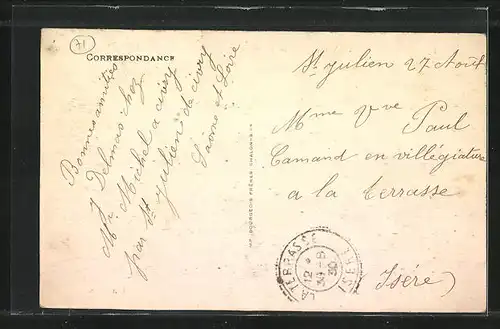 71
CORRESPONDANCE
Bonnes amitiés
J Delmas chez
Mr Michel a civry
par St Julien de civry
Saône et Loire
IMP. BOURGEOIS FRÈRES CHALON S/S
St Julien 27 Août
Mme Vve Paul
Camand en villégiature
a la terrasse
(Isère)
LA TERRASSE
ISERE
12 *
30 - 8
30